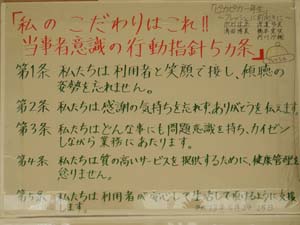 「私の こだわりはこれ!!
当事者意識の行動指針5カ条
第1条 私たちは利用者と笑顔で接し、傾聴の
姿勢を忘れません。
第2条 私たちは感謝の気持ちをたやさずありがとうを伝えます
第3条 私たちはどんな事にも問題意識を持ち、カイゼン
しながら業務にあたります。
第4条 私たちは質の高いサービスを提供するために、健康管理を
怠りません。
第5条 私たちは利用者が安心して生活して頂けるように支援
します。